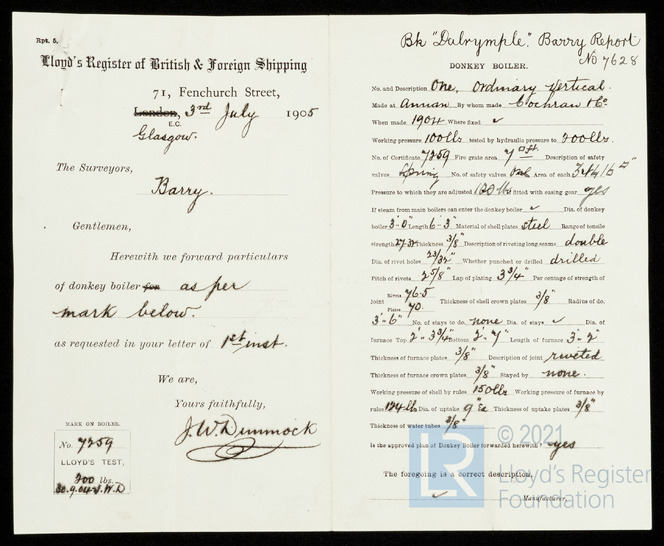 Rpt. 5.
Lloyd's Register of British & Foreign Shipping
71, Fenchurch Street,
London, 3rd July 1905
E.C.
Glasgow.
The Surveyors,
Barry.
Gentlemen,
Herewith we forward particulars
of donkey boiler for as per
mark below.
as requested in your letter of 1st inst.
We are,
Yours faithfully,
J. W. Dimmock
MARK ON BOILER.
No. 7259
LLOYD'S TEST,
200 lbs.
30.9.04 J.W.D
Bk "Dalrymple". Barry Report
No 7628
DONKEY BOILER.
No. and Description One, Ordinary Vertical.
Made at Annan By whom made Cochran & Co
When made 1904 Where fixed ✓
Working pressure 100lbs tested by hydraulic pressure to 200lbs.
No. of Certificate 7259 Fire grate area 7 Description of safety
valves Spring No. of safety valves one Area of each
Pressure to which they are adjusted fitted with easing gear yes
If steam from main boilers can enter the donkey boiler ✓ Dia. of donkey
boiler 3'-0" Length 6'-3" Material of shell plates steel Range of tensile
strength Thickness 3/8" Description of riveting long seams double
Dia. of rivet holes 23/32" Whether punched or drilled drilled
Pitch of rivets 2 5/8" Lap of plating 3 3/4" Per centage of strength of
Joint Rivets 76.5 Plates 70. Thickness of shell crown plates 3/8" Radius of do.
3'-6" No. of stays to do. none Dia. of stays ✓ Dia. of
furnace Top 2'-3 3/4" Bottom 2'-7" Length of furnace 3'-2"
Thickness of furnace plates 3/8" Description of joint riveted
Thickness of furnace crown plates 3/8" Stayed by none.
Working pressure of shell by rules 150lbs Working pressure of furnace by
rules 124lbs Dia. of uptake 9" Thickness of uptake plates 3/8"
Thickness of water tubes 3/8"
Is the approved plan of Donkey Boiler forwarded herewith yes
The foregoing is a correct description,
✓ Manufacturer.
LR
© 2021
Lloyd's Register
Foundation